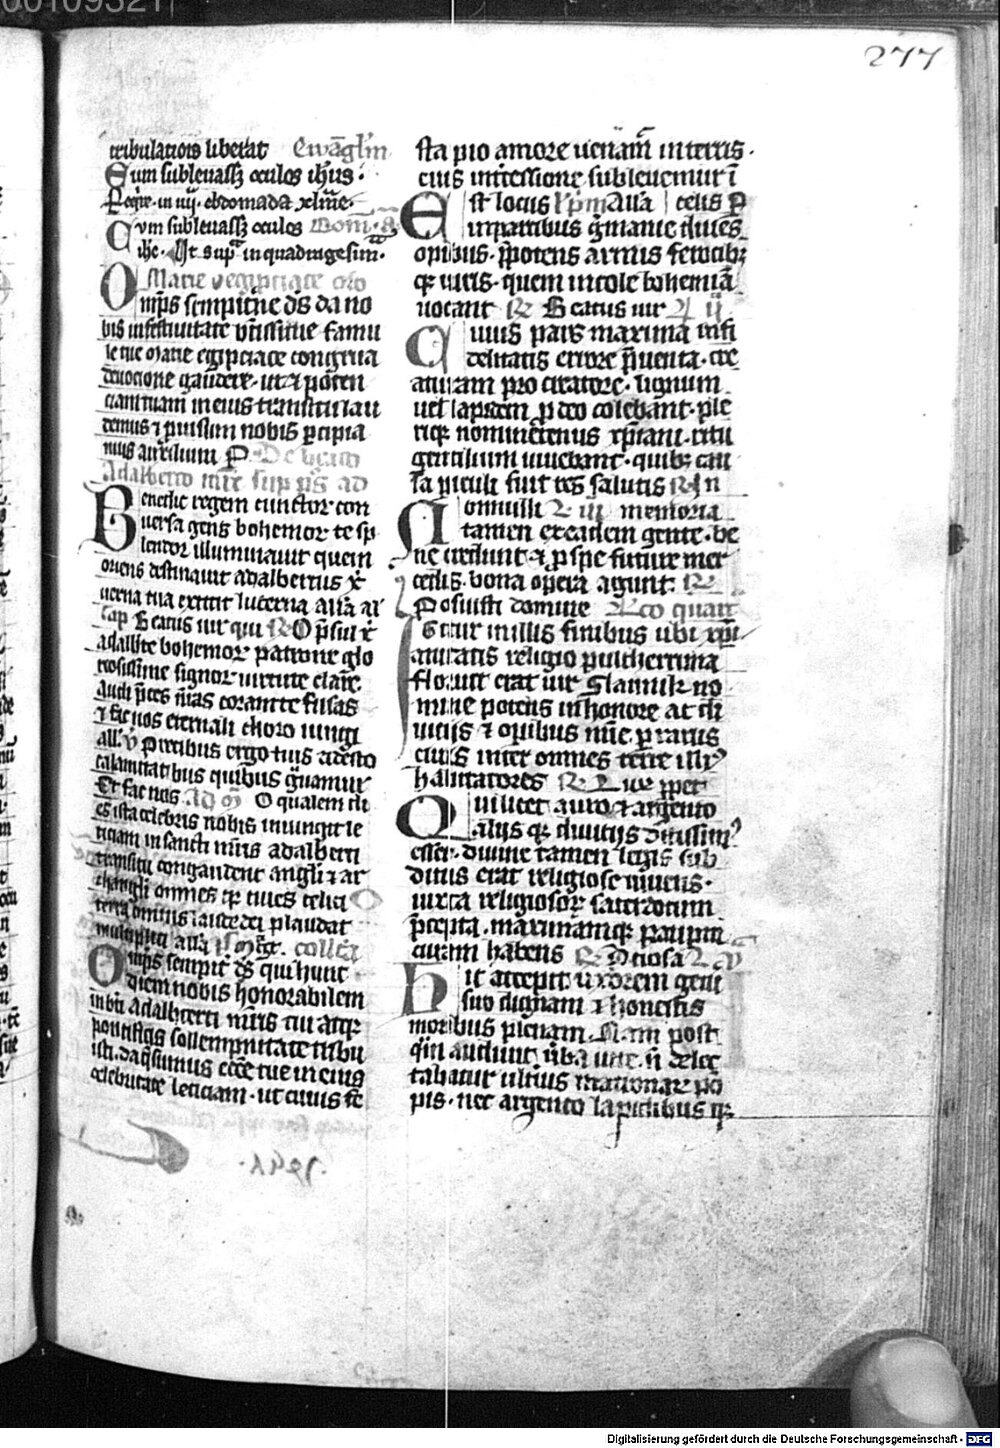 00109321
277
tribulatiōis liberat Ewāgliū
Cum subleuassz oculos ihus
Reqre in iiij ebdomada xlme
Cvm subleuassz oculos Dom
ihc Ut supͣ in quadragesim
Marie vegipciace oro
Omps sempitne ds da no
bis infestiuitate btissime famu
le tue Marie egipciace congrua
deuocione gaudere ut et poten
ciam tuam in eius transitu lau
demus et piissim nobis percipia
mus auxilium P De beato
Adalberto mre sup ps ad
Benedic regem cunctor con
uersa gens bohemor te sp
lendor illuminauit quem
oriens destinauit adalbertus xc
uerna tua extitit lucerna alla al
Cap Beatus uir qui R O psul xc
adalbte bohemor patrone glo
riosissime signor uirtute clare
audi pces nras corante fusas
et fac nos eternali choro iungi
all v Precibus ergo tuis adesto
calamitatibus quibus guamur
Et fac nos Ad m O qualem di
es ista celebris nobis iniungit le
ticiam in sancti mris adalberti
transitu congaudent angli et ar
changli omnes qz ciues celici
terra omnis laude dei plaudat
multiplici alla collecta
Omps sempit ds qui hunc
diem nobis honorabilem
in bti Adalberti mris tui atqz
pontificis sollempnitate tribu
isti da qsumus eccē tue in eius
celebritate leticiam ut cuius fe
sta pio amore ueneram in terris
eius intercessione subleuemur ī
Est locus celis p
in partibus gmanie diuies
opibus ppotens armis ferocibz
qz uiris quem incole bohemiā
uocant R Beatus uir ij
Cuius pars maxima infi
delitatis errore puenta cre
aturam pro creatore lignum
uel lapidem p deo colebant ple
riqz nominetenus xpiani ritu
gentilium uiuebant quibz cau
sa piculi fuit res salutis R In
Nonnulli iii memoria
tamen ex eadem gente be
ne credunt et p spe future mer
cedis bona opera agunt R
Posuisti domine Lco quar
Igitur in illis finibus ubi xpi
anitatis religio pulcherrima
floruit erat uir Slaunik no
mine potens in honore ac di
uitijs et opibus
cuius inter omnes terre illi
habitatores R
Qui licet auro et argento
alijs qz diuitijs ditissim
esset diuine tamen legis sub
ditus erat religiose uiuens
iuxta religiosor sacerdotum
pcepta maximamqz paupum
curam habens R v
Hic accepit uxorem geni
suo dignam et honestis
moribus plenam Nam post
qm audiuit uba uite n delec
tabatur ultius
pis nec argento lapidibus qz
Digitalisierung gefördert durch die Deutsche Forschungsgemeinschaft - DFG